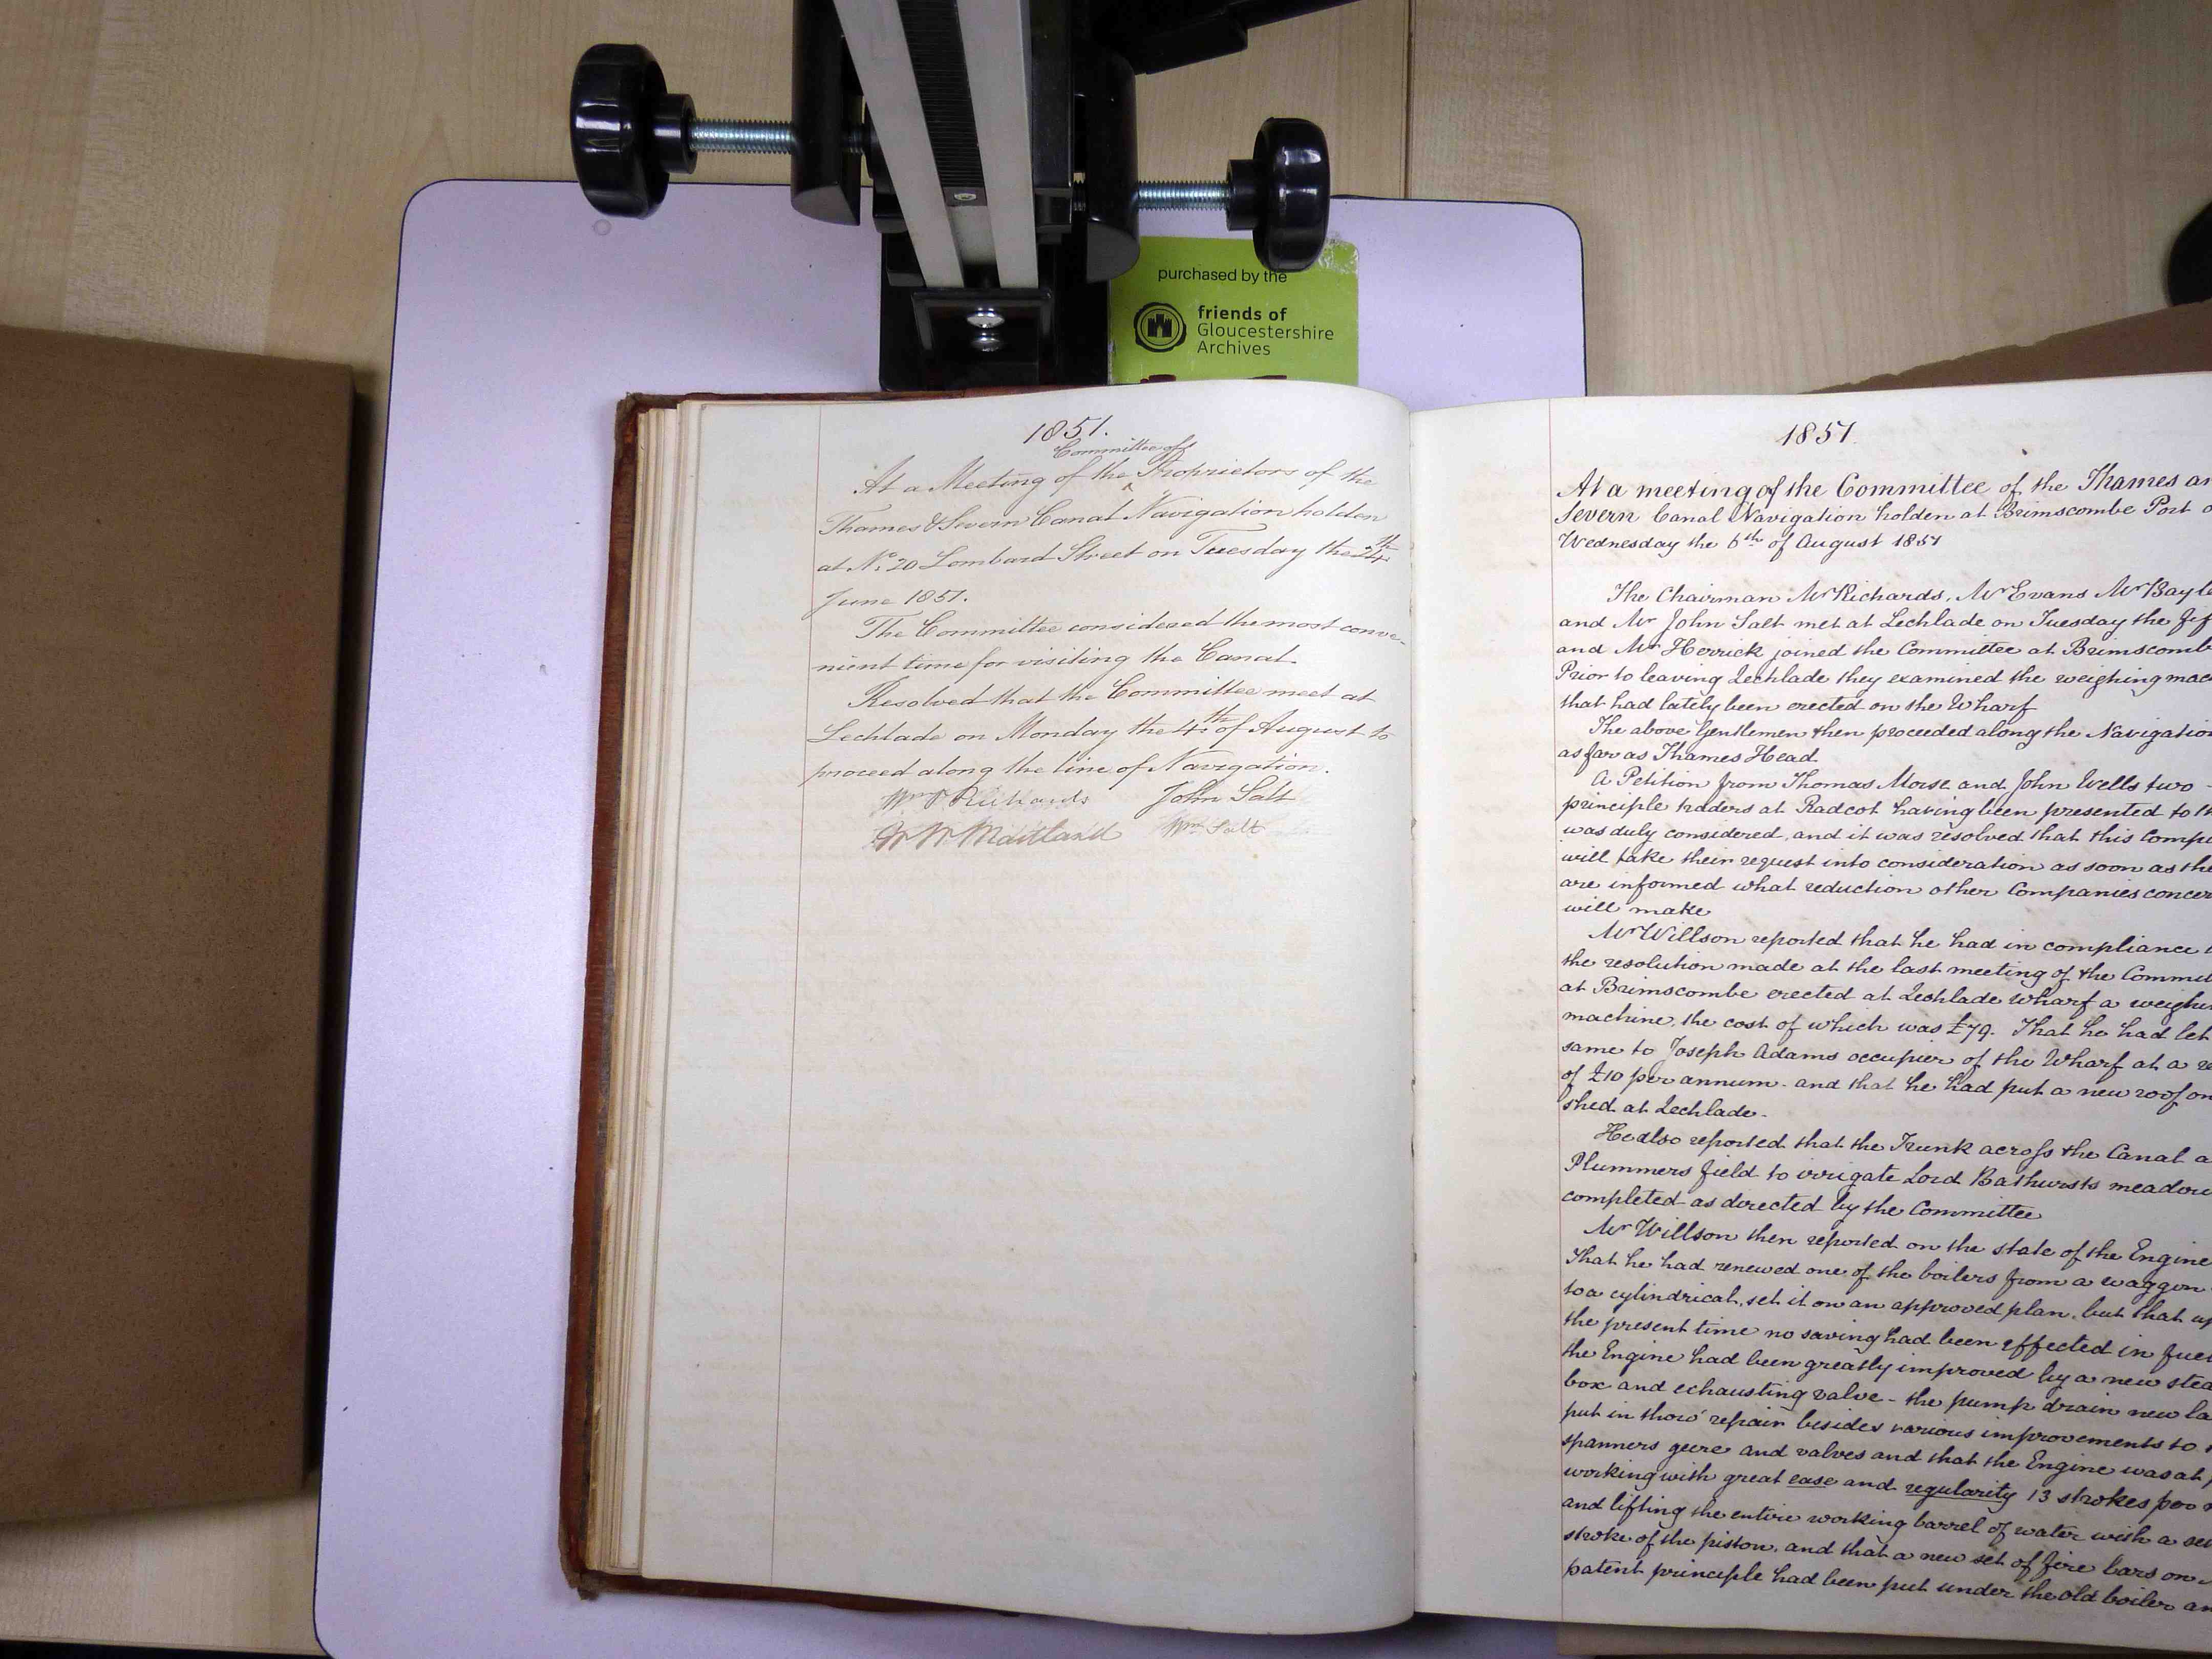 purchased by the
friends of
Gloucestershire
Archives
1851.
Committee of
At a Meeting of the Proprietors of the
Thames & Severn Canal Navigation holden
at No. 20 Lombard Street on Tuesday the 24th
June 1851.
The Committee considered the most conve-
nient time for visiting the Canal.
Resolved that the Committee meet at
Lechlade on Monday the 4th of August to
proceed along the line of Navigation.
Wm P Richards John Salt
W Maitland Wm Salt
1851.
At a meeting of the Committee of the Thames an
Severn Canal Navigation holden at Brimscombe Port o
Wednesday the 6th of August 1851
The Chairman Mr Richards, Mr Evans Mr Bayle
and Mr John Salt met at Lechlade on Tuesday the fif
and Mr Herrick joined the Committee at Brimscomb
Prior to leaving Lechlade they examined the weighing mac
that had lately been erected on the Wharf
The above Gentlemen then proceeded along the Navigation
as far as Thames Head.
A Petition from Thomas Morse and John Wells two
principle traders at Radcot having been presented to th
was duly considered, and it was resolved that this Comp
will take their request into consideration as soon as the
are informed what reduction other Companies concer
will make
Mr Willson reported that he had in compliance
the resolution made at the last meeting of the Commit
at Brimscombe erected at Lechlade Wharf a weighi
machine, the cost of which was £79. That he had let
same to Joseph Adams occupier of the Wharf at a re
of £10 per annum - and that he had put a new roof on
shed at Lechlade.
He also reported that the Trunk across the Canal a
Plummers field to irrigate Lord Bathursts meadow
completed as directed by the Committee
Mr Willson then reported on the state of the Engine
That he had renewed one of the boilers from a waggon
to a cylindrical, set it on an approved plan, but that up
the present time no saving had been effected in fuel
the Engine had been greatly improved by a new stea
box and echausting valve - the pump drain new la
put in thoro' repair besides various improvements to
spanners geere and valves and that the Engine was at
working with great ease and regularity 13 strokes per
and lifting the entire working barrel of water with a
stroke of the piston, and that a new set of fire bars on
patent principle had been put under the old boiler an